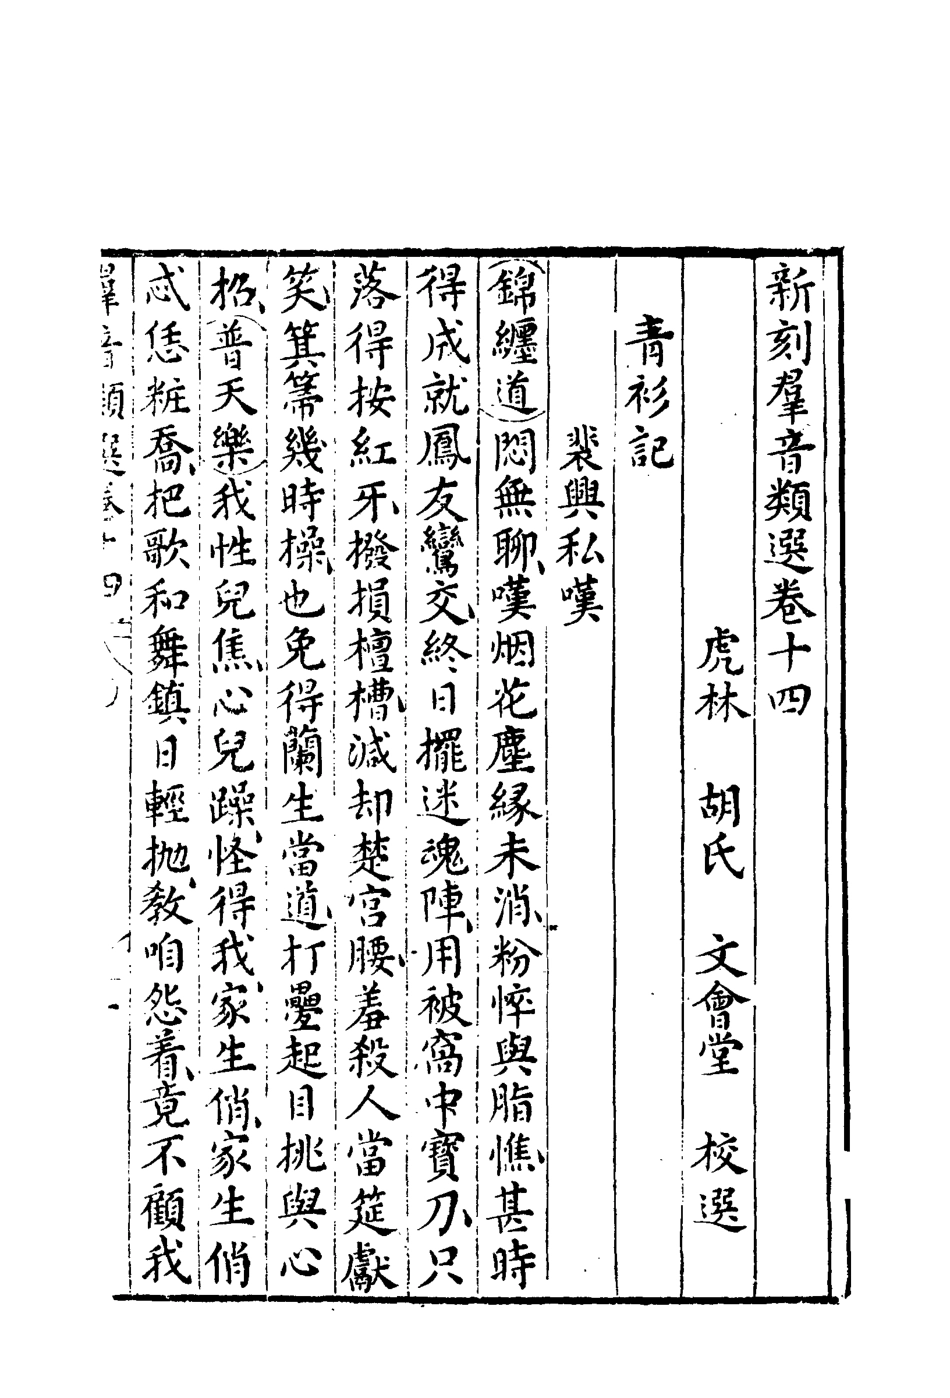 新刻羣音類選卷十四
虎林 胡氏 文會堂 校選
青衫記
裴興私嘆
錦纏道悶無聊、嘆烟花塵緣未消、粉悴與脂憔、甚時
得成就鳳友鸞交、終日擺迷魂陣、用被窩中寶刀、只
落得按紅牙、撥損檀槽、減却楚宮腰、羞殺人當筵獻
笑、箕箒幾時操、也免得蘭生當道、打疊起目挑與心
招、普天樂我性兒焦、心兒躁、怪得我、家生俏、家生俏
忒恁粧喬、把歌和舞鎮日輕拋、教咱怨着、竟不顧我
羣音類選卷十四